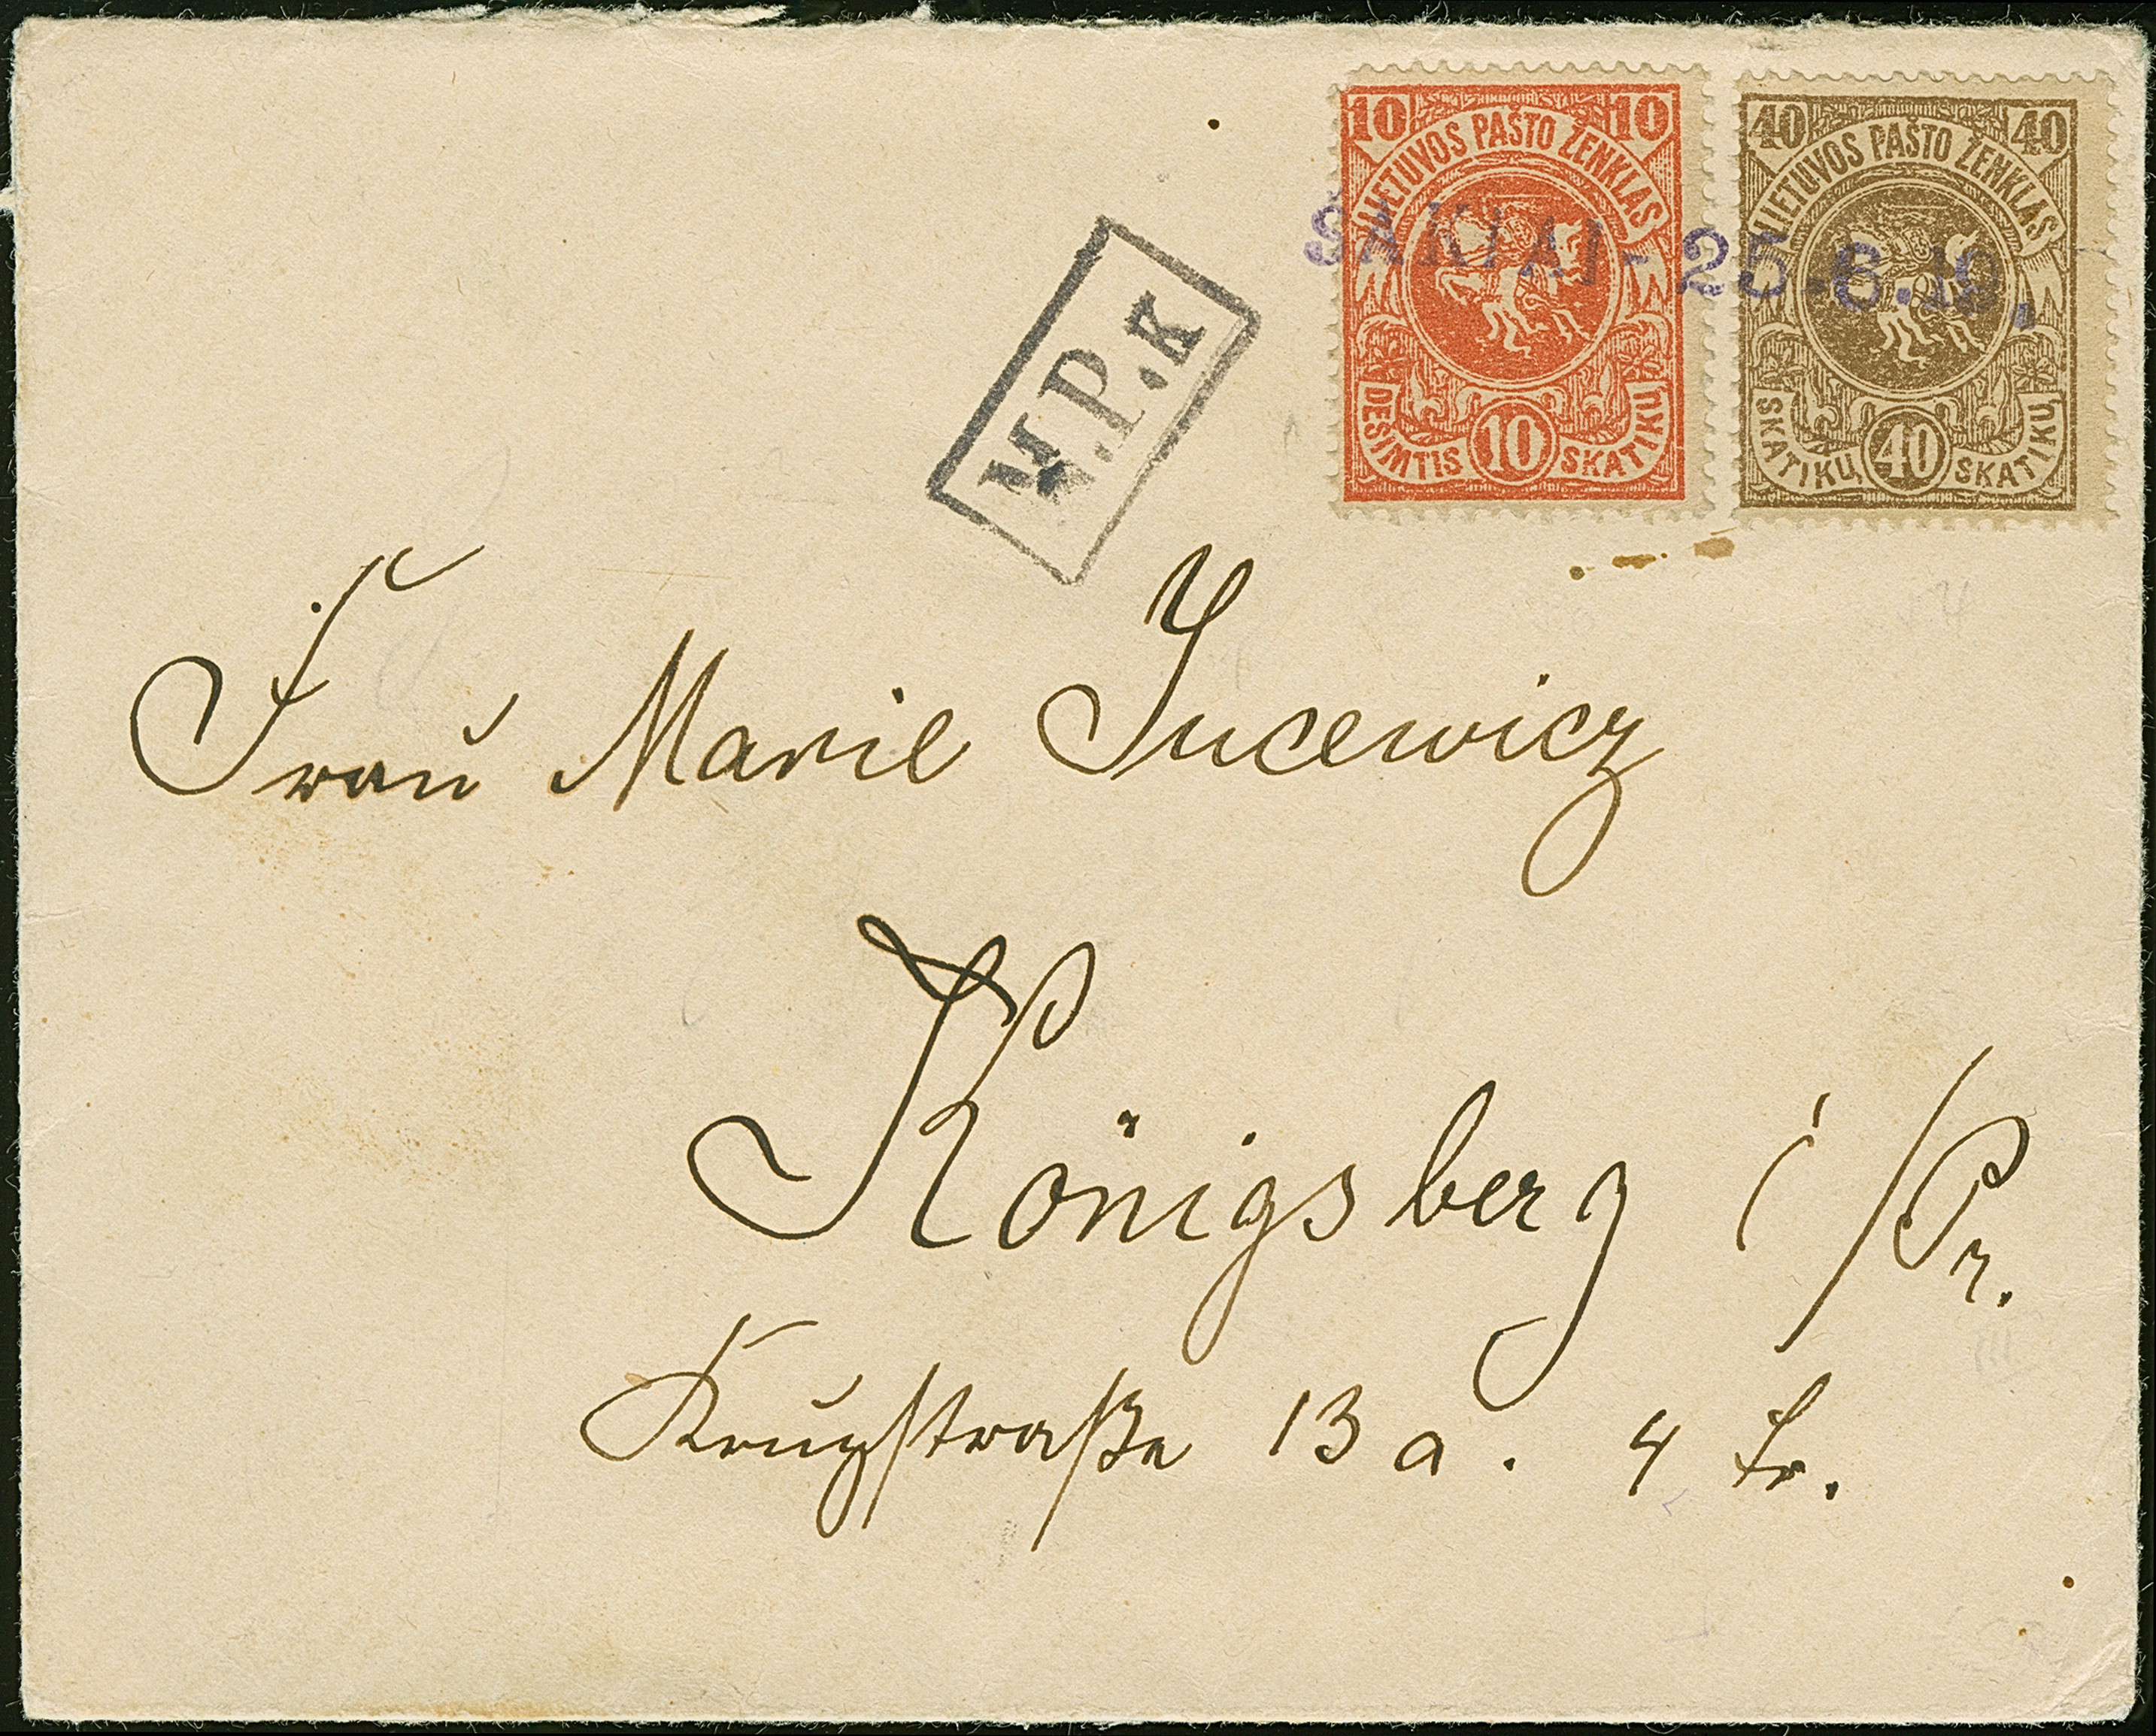 10 10
LIETUVOS PAŠTO ŽENKLAS
DEŠIMTIS 10 SKATIKŲ
40 40
LIETUVOS PAŠTO ŽENKLAS
SKATIKŲ 40 SKATIKŲ
ŠAKIAI-25.6.19.
Frau Marie Jucewicz
Königsberg i/Pr.
Krugstraße 13 a. 4 Tr.